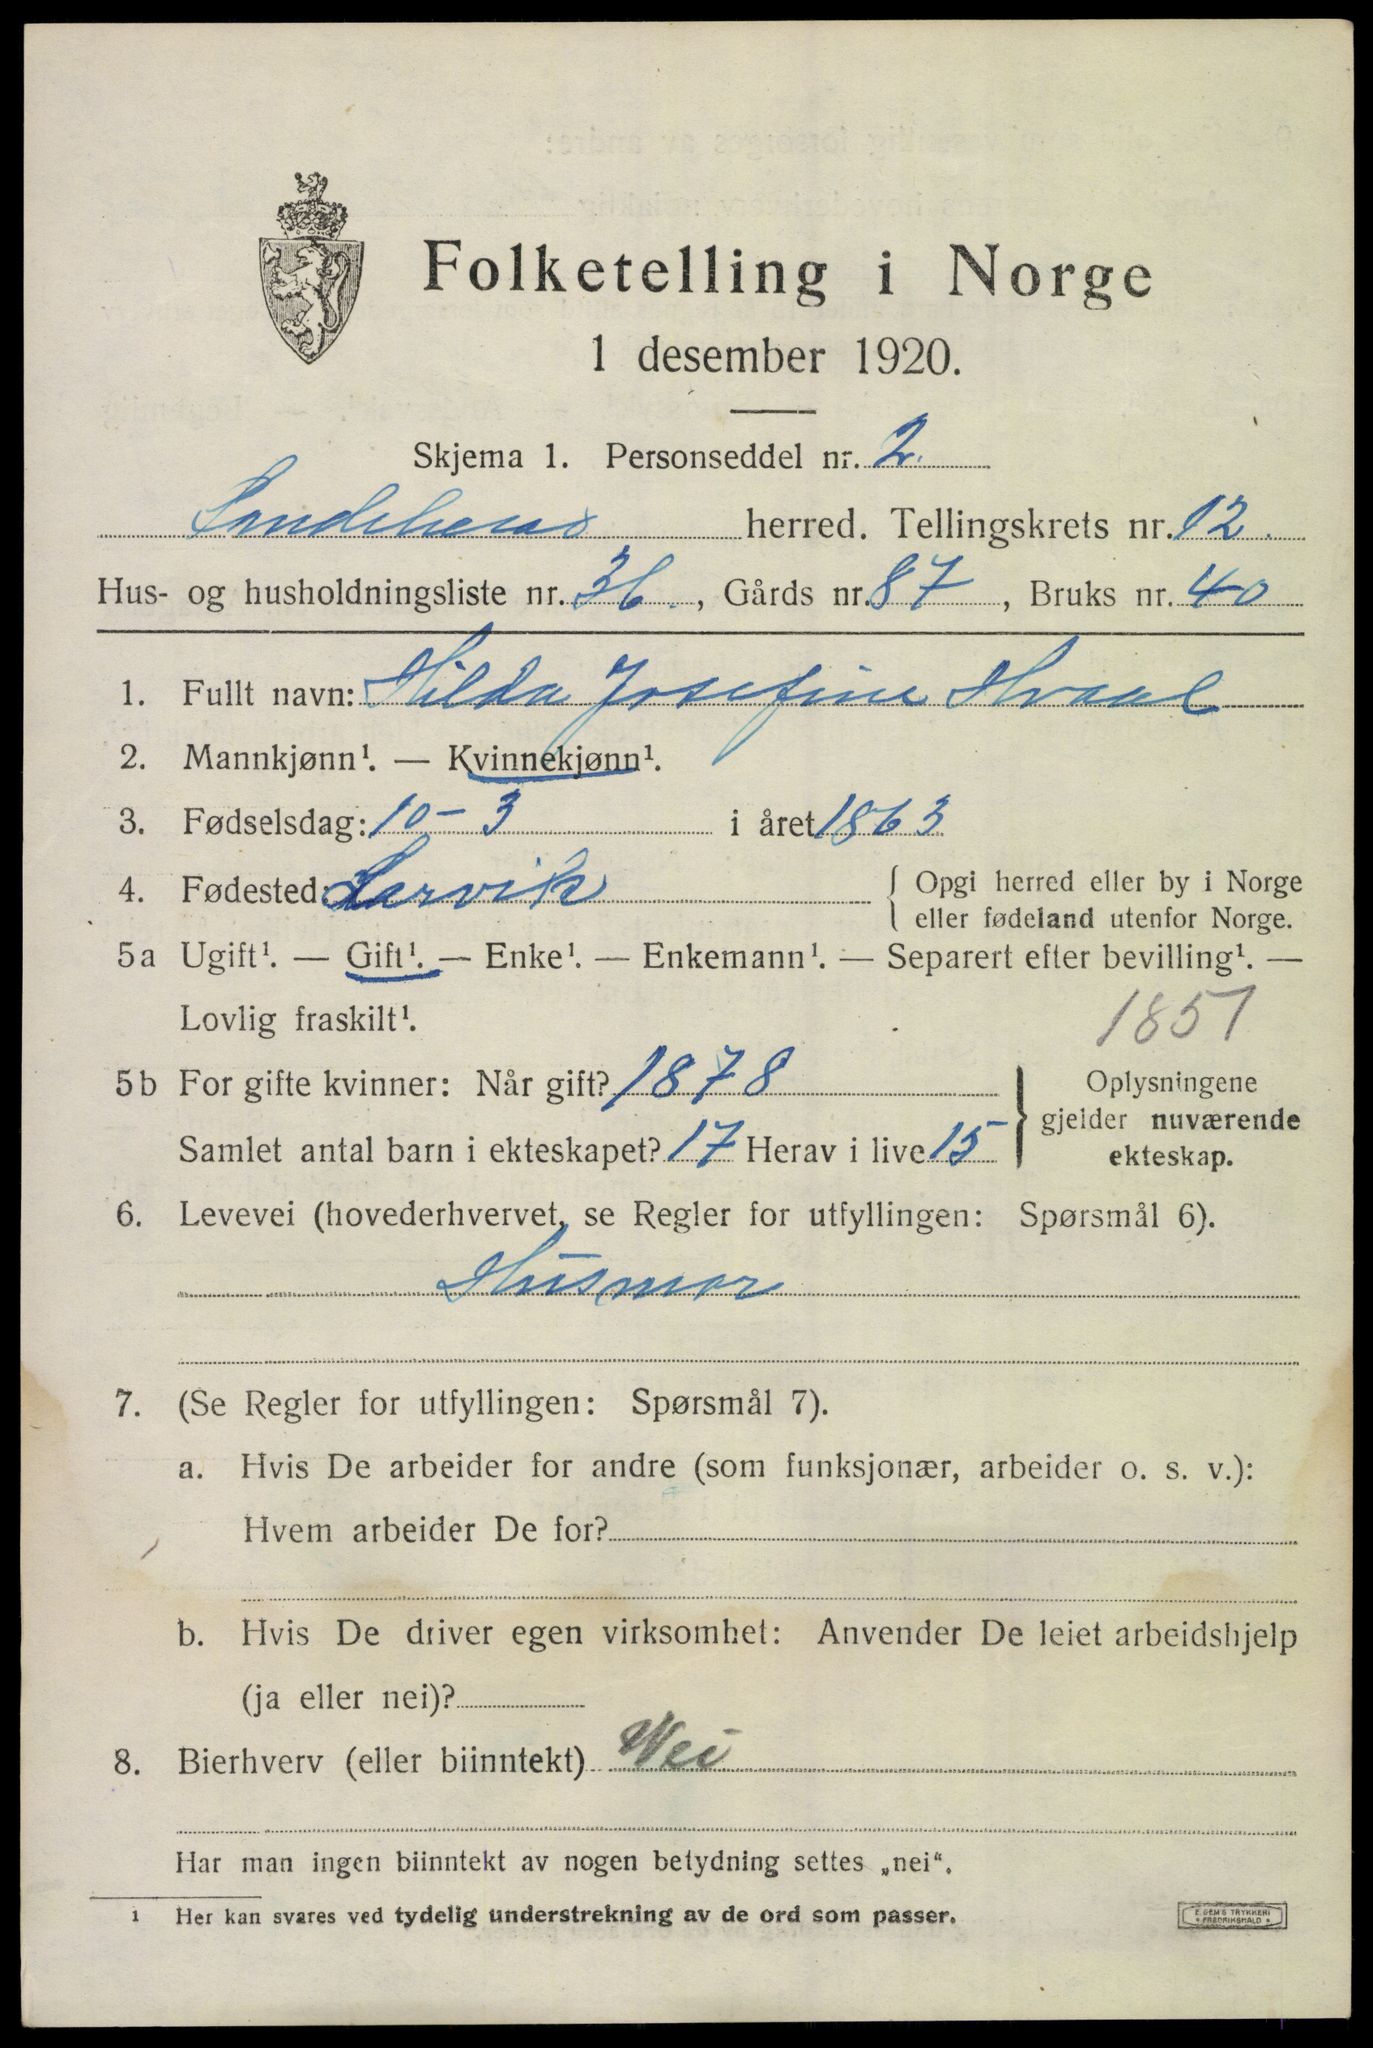 Folketelling i Norge
1 desember 1920.
Skjema 1. Personseddel nr. 2.
Sandeherad herred. Tellingskrets nr. 12.
Hus- og husholdningsliste nr. 36., Gårds nr. 87, Bruks nr. 40
1. Fullt navn: Hilda Josefine Hvaal
2. Mannkjønn¹. — Kvinnekjønn¹.
3. Fødselsdag: 10-3 i året 1863
4. Fødested: Larvik { Opgi herred eller by i Norge
eller fødeland utenfor Norge.
5a Ugift¹. — Gift¹. — Enke¹. — Enkemann¹. — Separert efter bevilling¹. —
Lovlig fraskilt¹.
1857
5b For gifte kvinner: Når gift? 1878
Samlet antal barn i ekteskapet? 17 Herav i live 15
} Oplysningene
gjelder nuværende
ekteskap.
6. Levevei (hovederhvervet, se Regler for utfyllingen: Spørsmål 6).
Husmor
7. (Se Regler for utfyllingen: Spørsmål 7).
a. Hvis De arbeider for andre (som funksjonær, arbeider o. s. v.):
Hvem arbeider De for?
b. Hvis De driver egen virksomhet: Anvender De leiet arbeidshjelp
(ja eller nei)?
8. Bierhverv (eller biinntekt) Nei
Har man ingen biinntekt av nogen betydning settes „nei“.
1 Her kan svares ved tydelig understrekning av de ord som passer.
E. SEM'S TRYKKERI
* FREDRIKSHALD *